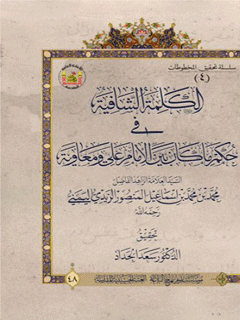 سلسلة تحقيق المخطوطات
(٤)
الكلمة الشافية
في
حكم ما كان بين الإمام علي ومعاوية
السيد العلامة الزاهد الفاضل
محمد بن محمد بن إسماعيل المنصور الزيدي اليمني
رحمه الله
تحقيق
الدكتور سعد الحداد
٤٨